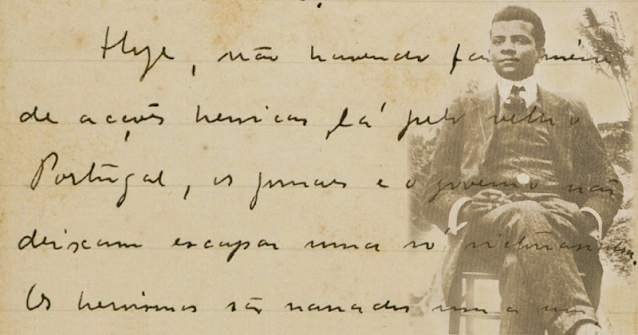 Hoje, não havendo
de acções heroicas, lá pelo velho
Portugal, os jornaes e o governo não
deixam escapar uma só
Os heroismos são narrados um a um